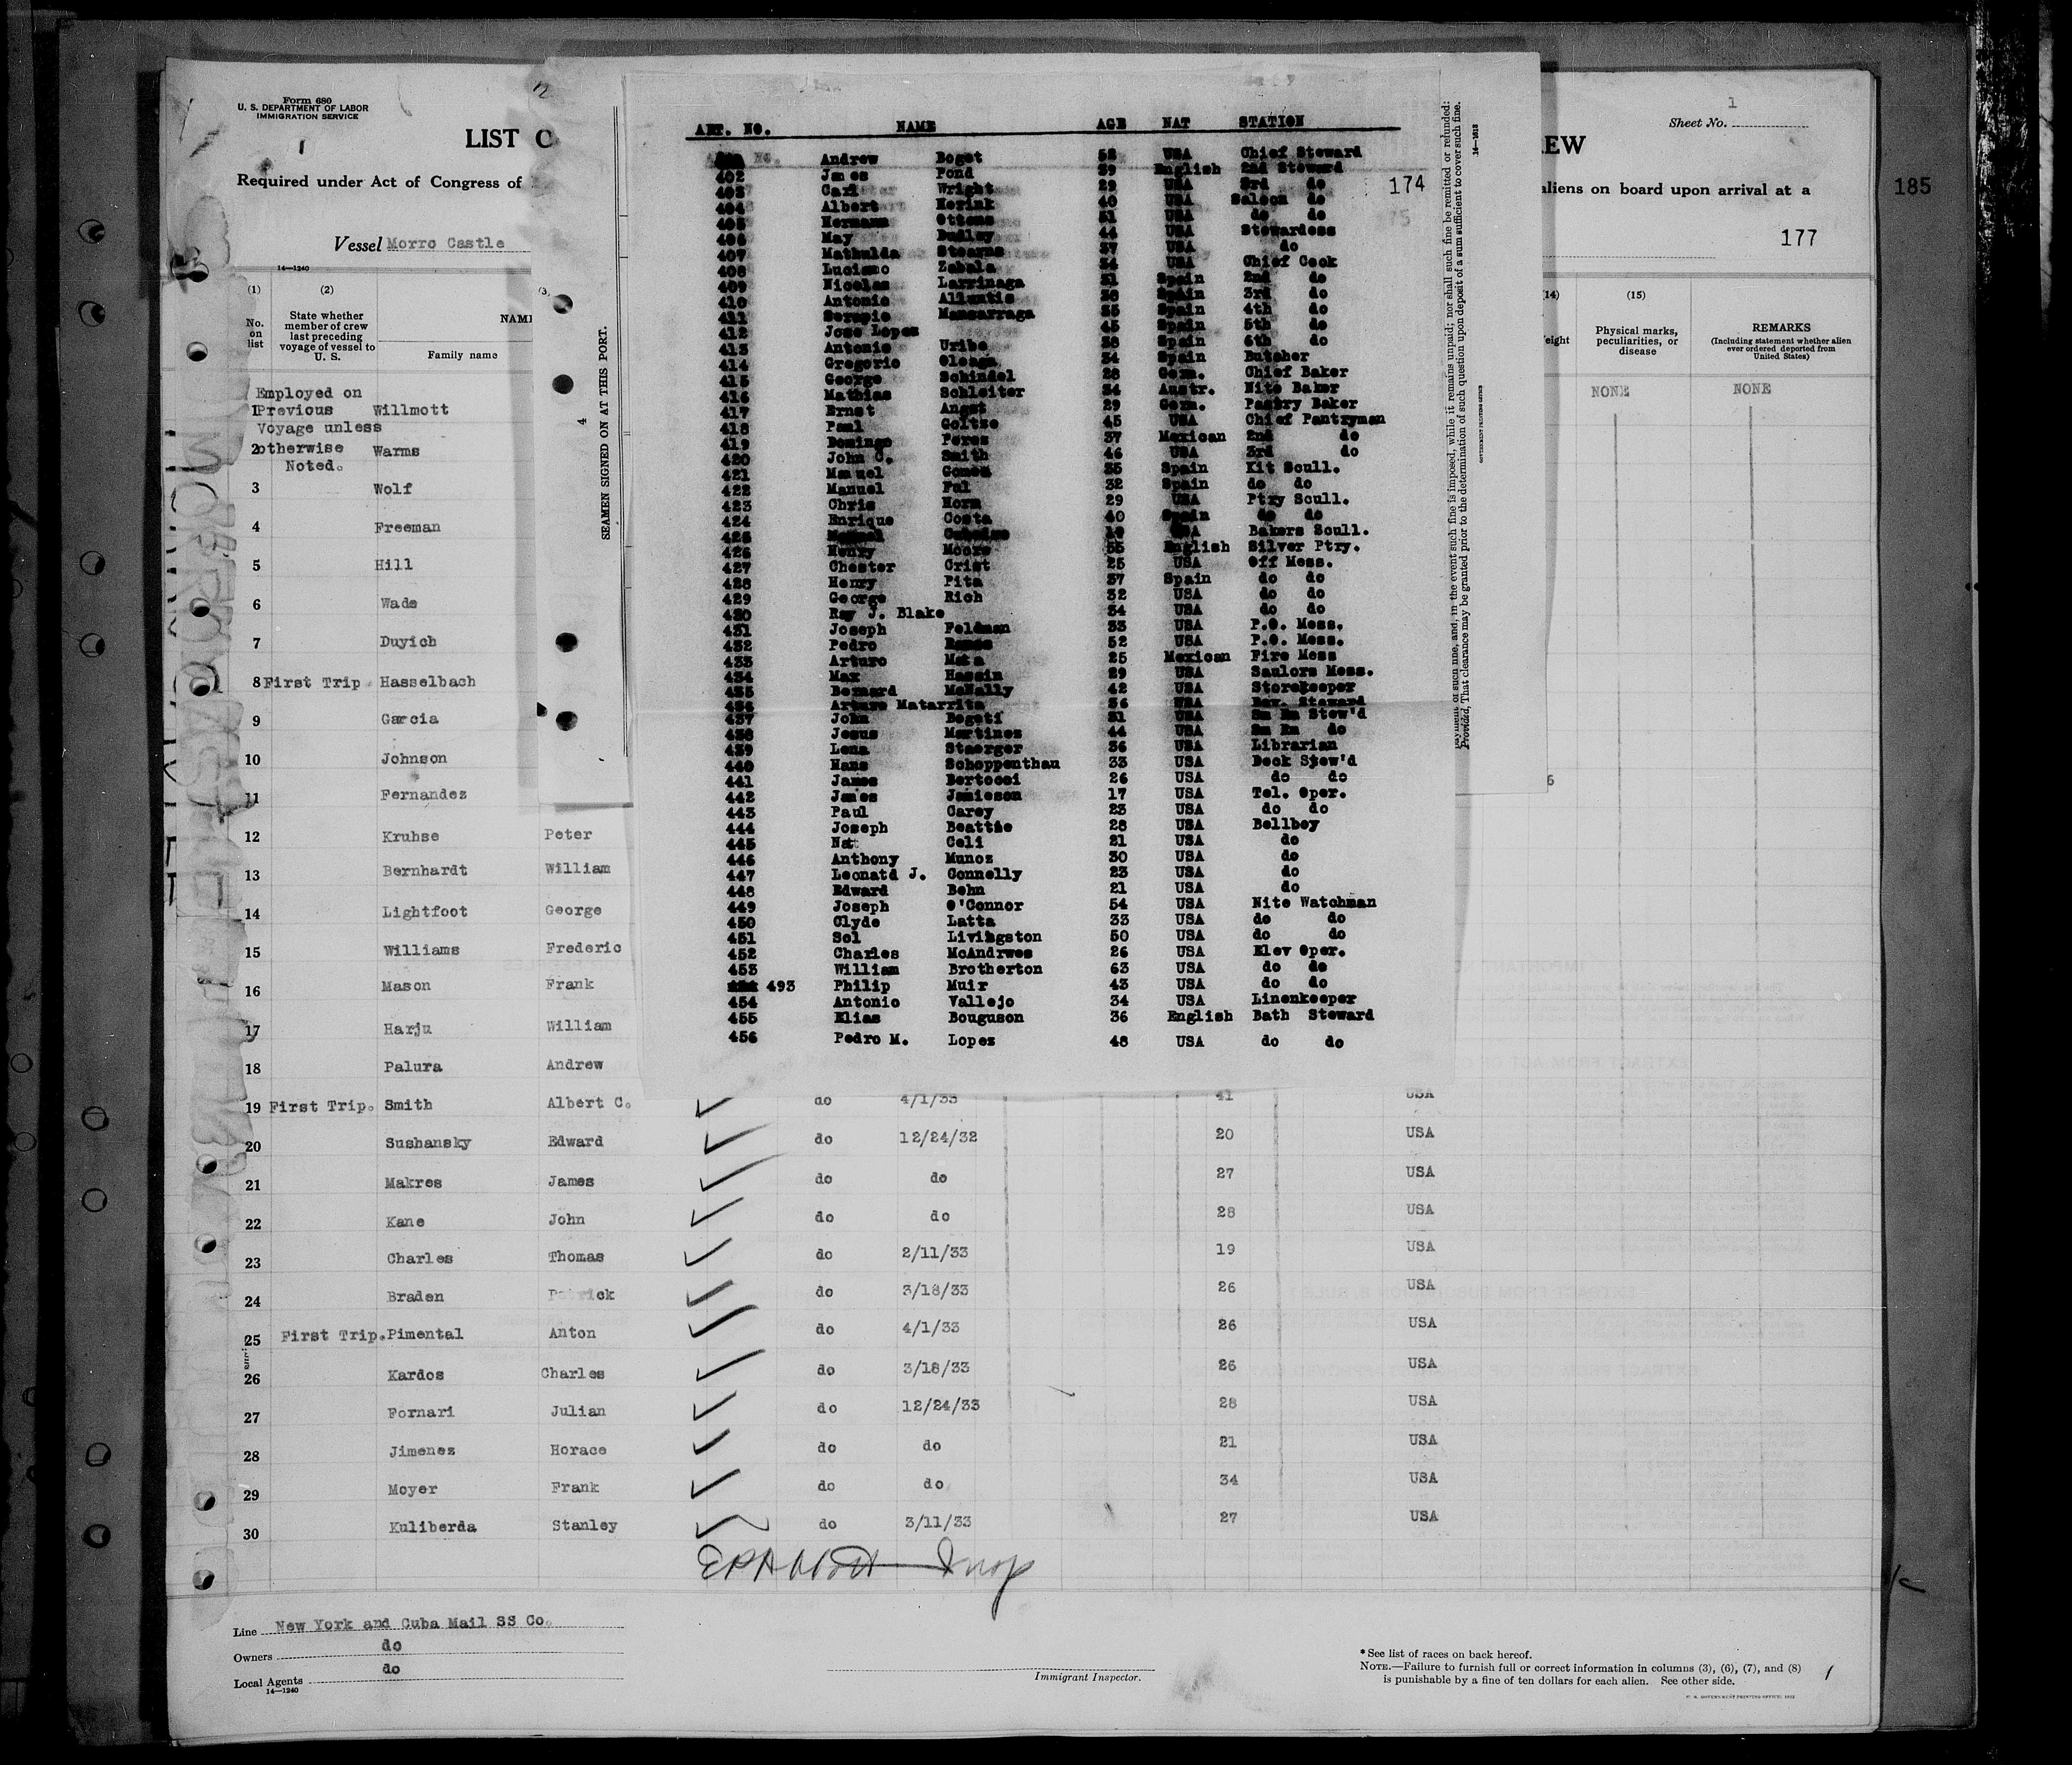 Form 680
U. S. DEPARTMENT OF LABOR
IMMIGRATION SERVICE
LIST
Required under Act of Congress of
Vessel Morro Castle
14—1240
(1) (2) (3)
No. on list
State whether member of crew last preceding voyage of vessel to U. S.
Family name
Employed on
1 Previous Willmott
Voyage unless
2 otherwise Warms
Noted.
3 Wolf
4 Freeman
5 Hill
6 Wade
7 Duyich
8 First Trip Hasselbach
9 Garcia
10 Johnson
11 Fernandez
12 Kruhse Peter
13 Bernhardt William
14 Lightfoot George
15 Williams Frederic
16 Mason Frank
17 Harju William
18 Palura Andrew
19 First Trip. Smith Albert C. do 4/1/33 41 USA
20 Sushansky Edward do 12/24/32 20 USA
21 Makres James do do 27 USA
22 Kane John do do 28 USA
23 Charles Thomas do 2/11/33 19 USA
24 Braden do 3/18/33 26 USA
25 First Trip. Pimental Anton do 4/1/33 26 USA
26 Kardos Charles do 3/18/33 26 USA
27 Fornari Julian do 12/24/33 28 USA
28 Jimenez Horace do do 21 USA
29 Moyer Frank do do 34 USA
30 Kuliberda Stanley do 3/11/33 27 USA
Line New York and Cuba Mail SS Co.
Owners do
Local Agents do
14—1240
Immigrant Inspector.
* See list of races on back hereof.
NOTE.—Failure to furnish full or correct information in columns (3), (6), (7), and (8)
is punishable by a fine of ten dollars for each alien. See other side.
4
SEAMEN SIGNED ON AT THIS PORT.
ART. NO. NAME AGE NAT STATION
Andrew Boget 52 USA Chief Steward
402 James Pond 39 English 2nd Steward
403 Carl Wright 29 USA 3rd do
404 Albert Merink 40 USA Saloon do
405 Hermann Ottens 51 USA do do
406 May Dudley 44 USA Stewardess
407 Mathulda Stearns 37 USA do
408 Luciano Zabala 34 USA Chief Cook
409 Nicolas Larrinaga 31 Spain 2nd do
410 Antonio Alluntis 38 Spain 3rd do
411 Serapio Mansarraga 35 Spain 4th do
412 Jose Lopez 45 Spain 5th do
413 Antonio Uribe 38 Spain 6th do
414 Gregorio Oleaga 34 Spain Butcher
415 George Schindel 28 Germ. Chief Baker
416 Mathias Schleiter 34 Austr. Nite Baker
417 Ernst Angst 29 Germ. Pastry Baker
418 Paul Goltze 45 USA Chief Pantryman
419 Domingo Perez 37 Mexican 2nd do
420 John C. Smith 46 USA 3rd do
421 Manuel Gomez 35 Spain Kit Scull.
422 Manuel Pal 32 Spain do do
423 Chris Horn 29 USA Ptry Scull.
424 Enrique Costa 40 Spain do do
425 USA Bakers Scull.
426 Henry Moore 55 English Silver Ptry.
427 Chester Crist 25 USA Off Mess.
428 Henry Pita 37 Spain do do
429 George Rich 32 USA do do
430 Ray J. Blake 34 USA do do
431 Joseph Feldman 33 USA P.O. Mess.
432 Pedro Ramos 52 USA P.O. Mess.
433 Arturo Mata 25 Mexican Fire Mess
434 Max Hassin 29 USA Saulors Mess.
435 Bernard McNally 42 USA Storekeeper
436 Arturo Matarrita 36 USA Bev. Steward
437 John Bogeti 31 USA Sm Rm Stew'd
438 Jesus Martinez 44 USA Sm Rm do
439 Lena Staerger 36 USA Librarian
440 Hans Schoppenthau 33 USA Deck Stew'd
441 James Bertocci 26 USA do do
442 James Jamieson 17 USA Tel. Oper.
443 Paul Carey 23 USA do do
444 Joseph Beattie 28 USA Bellboy
445 Nat Celi 21 USA do
446 Anthony Munoz 30 USA do
447 Leonatd J. Connelly 23 USA do
448 Edward Behn 21 USA do
449 Joseph O'Connor 54 USA Nite Watchman
450 Clyde Latta 33 USA do do
451 Sol Livingston 50 USA do do
452 Charles McAndrwes 26 USA Elev Oper.
453 William Brotherton 63 USA do do
493 Philip Muir 43 USA do do
454 Antonio Vallejo 34 USA Linenkeeper
455 Elias Bouguson 36 English Bath Steward
456 Pedro M. Lopez 48 USA do do
174
payment of such fine, and, in the event such fine is imposed, while it remains unpaid; nor shall such fine be remitted or refunded:
Provided, That clearance may be granted prior to the determination of such question upon deposit of a sum sufficient to cover such fine.
1
Sheet No.
EW
aliens on board upon arrival at a
185
177
(14) (15)
Physical marks, peculiarities, or disease
REMARKS
(Including statement whether alien ever ordered deported from United States)
NONE NONE